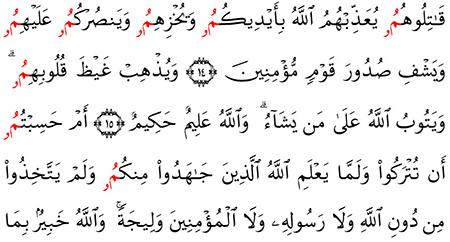 قَٰتِلُوهُمُۥ يُعَذِّبْهُمُ ٱللَّهُ بِأَيْدِيكُمُۥ وَيُخْزِهِمُۥ وَيَنصُرْكُمُۥ عَلَيْهِمُۥ
وَيَشْفِ صُدُورَ قَوْمٍ مُّؤْمِنِينَ ١٤ وَيُذْهِبْ غَيْظَ قُلُوبِهِمُۥ ۗ
وَيَتُوبُ ٱللَّهُ عَلَىٰ مَن يَشَآءُ ۗ وَٱللَّهُ عَلِيمٌ حَكِيمٌ ١٥ أَمْ حَسِبْتُمُۥ
أَن تُتْرَكُوا۟ وَلَمَّا يَعْلَمِ ٱللَّهُ ٱلَّذِينَ جَٰهَدُوا۟ مِنكُمُۥ وَلَمْ يَتَّخِذُوا۟
مِن دُونِ ٱللَّهِ وَلَا رَسُولِهِۦ وَلَا ٱلْمُؤْمِنِينَ وَلِيجَةً ۚ وَٱللَّهُ خَبِيرٌۢ بِمَا